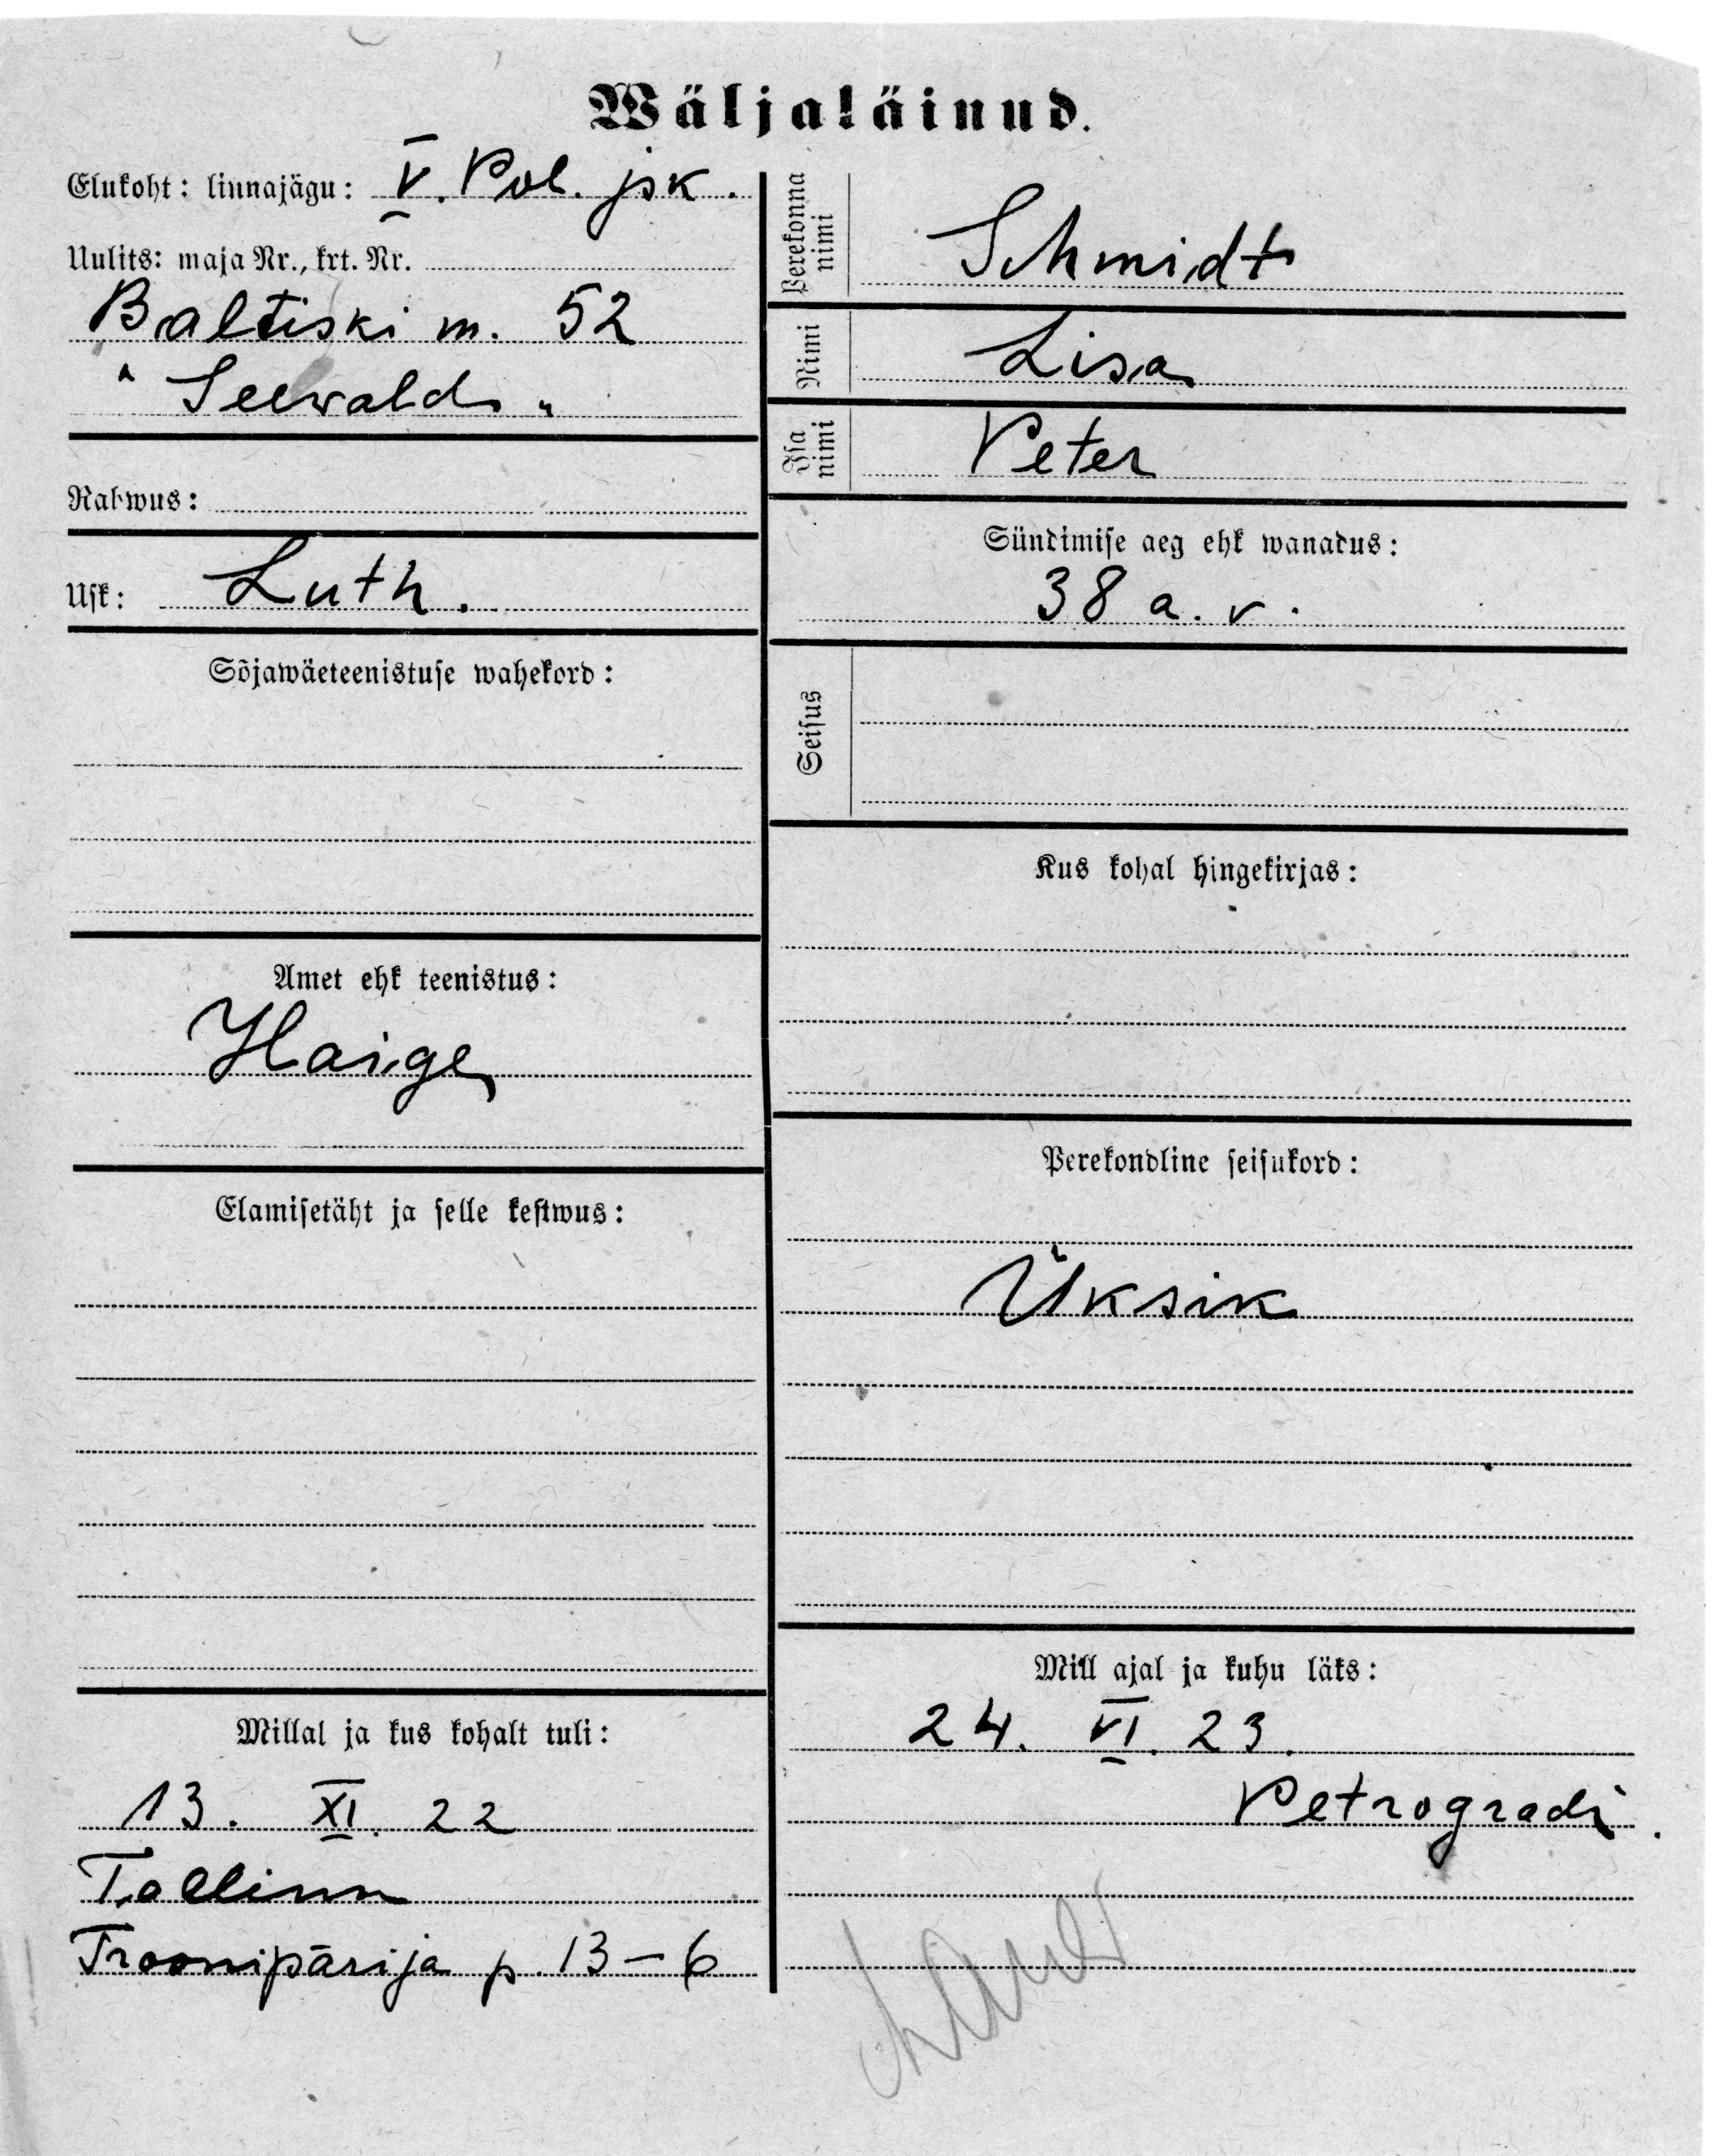 Wäljaläinud.
Elukoht: linnajägu: V. Pol. jsk.
Uulits: maja Nr., krt. Nr.
Baltiski m. 52
"Seewald"
Rahwus:
Usk: Luth.
Sõjawäeteenistuse wahekord:
Amet ehk teenistus:
Haige
Elamisetäht ja selle kestwus:
Millal ja kus kohalt tuli:
13. XI. 22
Tallinn
Troonipärija p. 13-6
Perekonna nimi Schmidt
Nimi Lisa
Isa nimi Peter
Sündimise aeg ehk wanadus:
38 a. v.
Seisus
Kus kohal hingekirjas:
Perekondline seisukord:
Üksik
Mill ajal ja kuhu läks:
24. VI. 23.
Petrogradi.